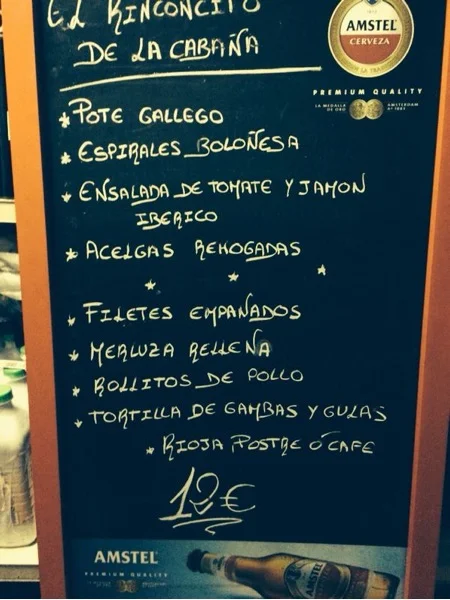 EL RINCONCITO
DE LA CABAÑA
AMSTEL
CERVEZA
PREMIUM QUALITY
LA MEDALLA DE ORO
AMSTERDAM Nº 1883
* POTE GALLEGO
* ESPIRALES BOLOÑESA
* ENSALADA DE TOMATE Y JAMON
IBERICO
* ACELGAS REHOGADAS
* * *
* FILETES EMPAÑADOS
* MERLUZA RELLEÑA
* ROLLITOS DE POLLO
* TORTILLA DE GAMBAS Y GULAS
* RIOJA POSTRE Ó CAFE
12€
AMSTEL
PREMIUM QUALITY